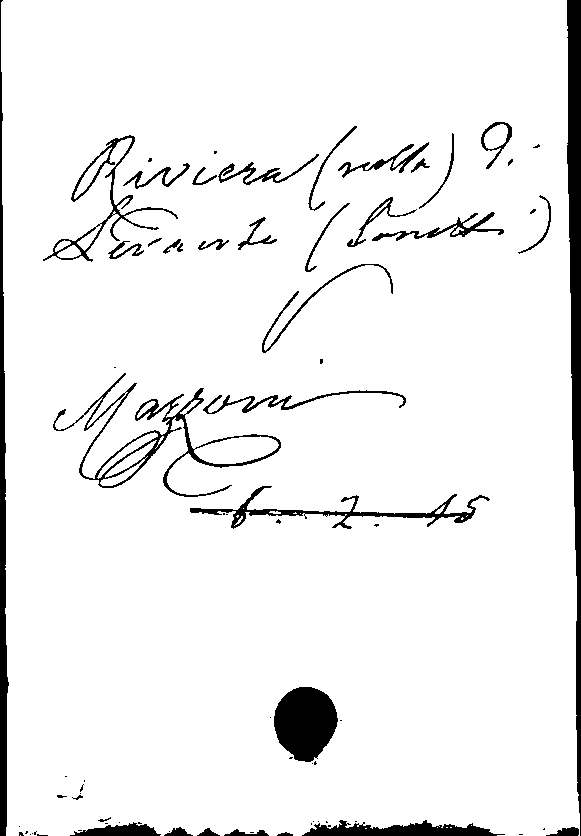 Riviera (nolla) 9.-
Levante (Bonetti)
V
Mazzoni
6. 2. 15